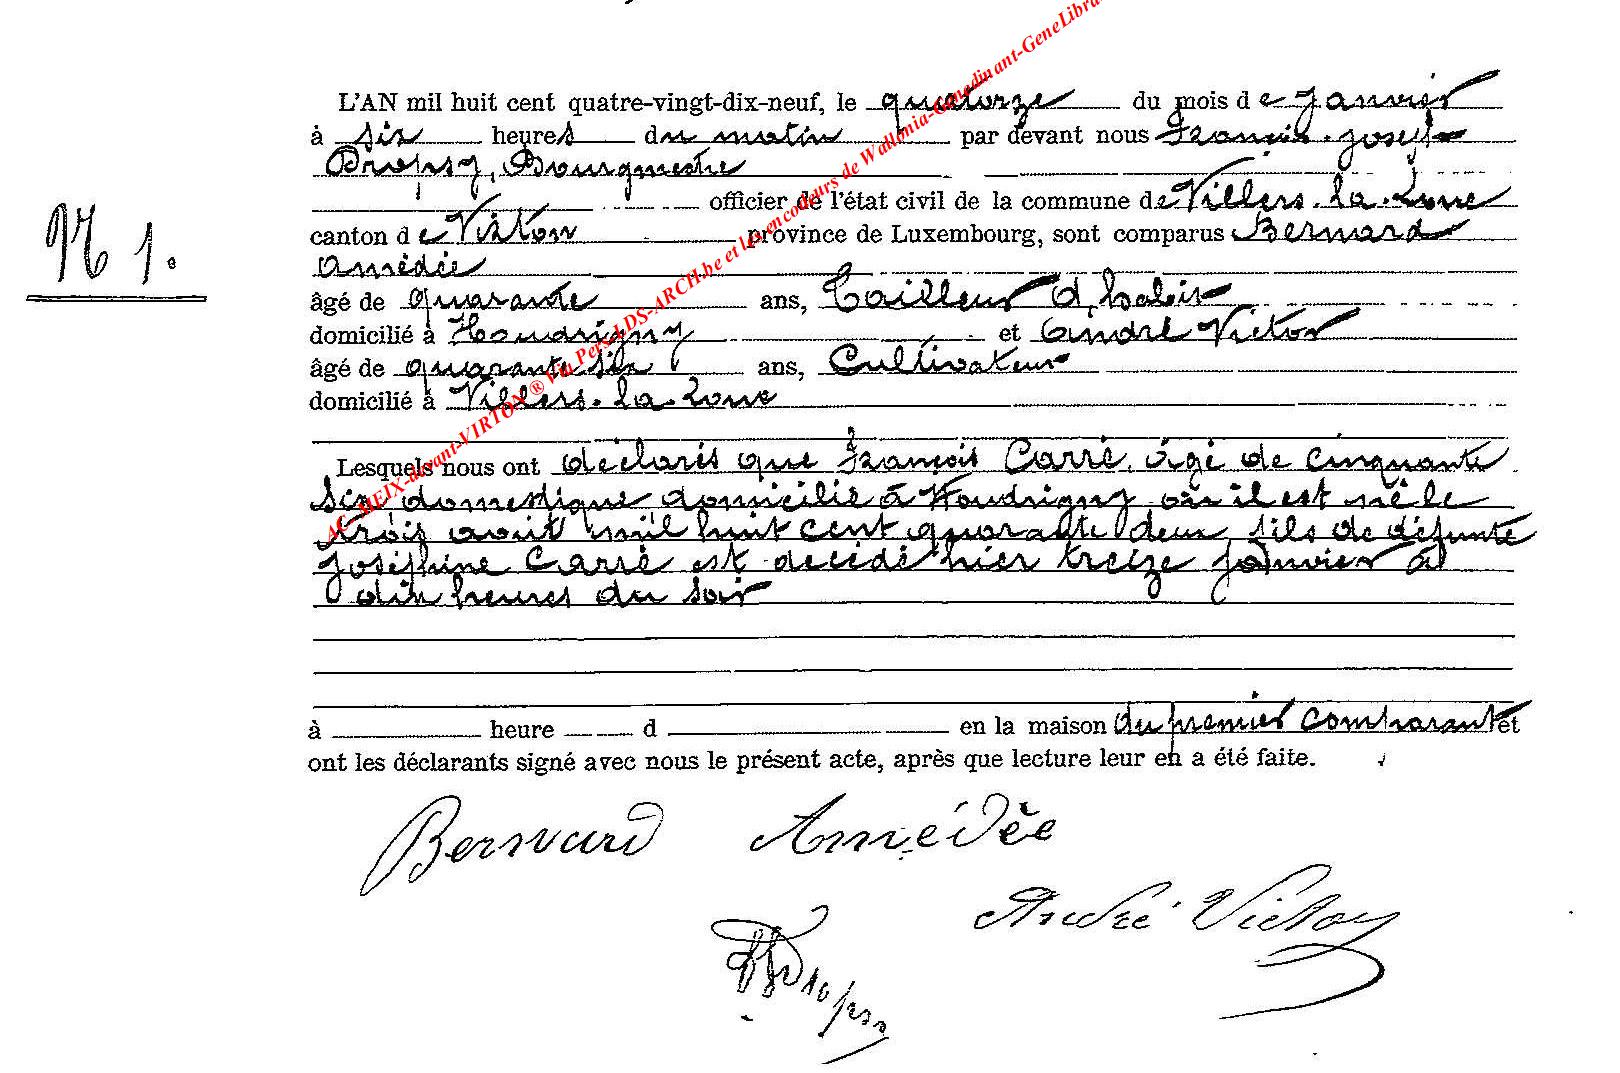 L'AN mil huit cent quatre-vingt-dix-neuf, le quatorze du mois de Janvier
à six heures du matin par devant nous François-Joseph
Dropsy, Bourgmestre
officier de l'état civil de la commune de Villers-la-Loue
canton de Virton province de Luxembourg, sont comparus Bernard
Amédée
N 1.
âgé de quarante ans, Tailleur d'habits
domicilié à Houdrigny et André Victor
âgé de quarante six ans, Cultivateur
domicilié à Villers-la-Loue
Lesquels nous ont déclarés que François Carré, âgé de cinquante
six, domestique domicilié à Houdrigny où il est né le
trois août mil huit cent quarante deux, fils de défunte
Joséphine Carré est décédé hier treize janvier à
dix heures du soir
à heure d en la maison du premier comparant et
ont les déclarants signé avec nous le présent acte, après que lecture leur en a été faite.
Bernard Amédée
André Victor
FJDropsy
AC-MEIX-devant-VIRTON® Via Pers-LDS-ARCH.be et les encodeurs de Wallonia-Genedinant-GeneLibra